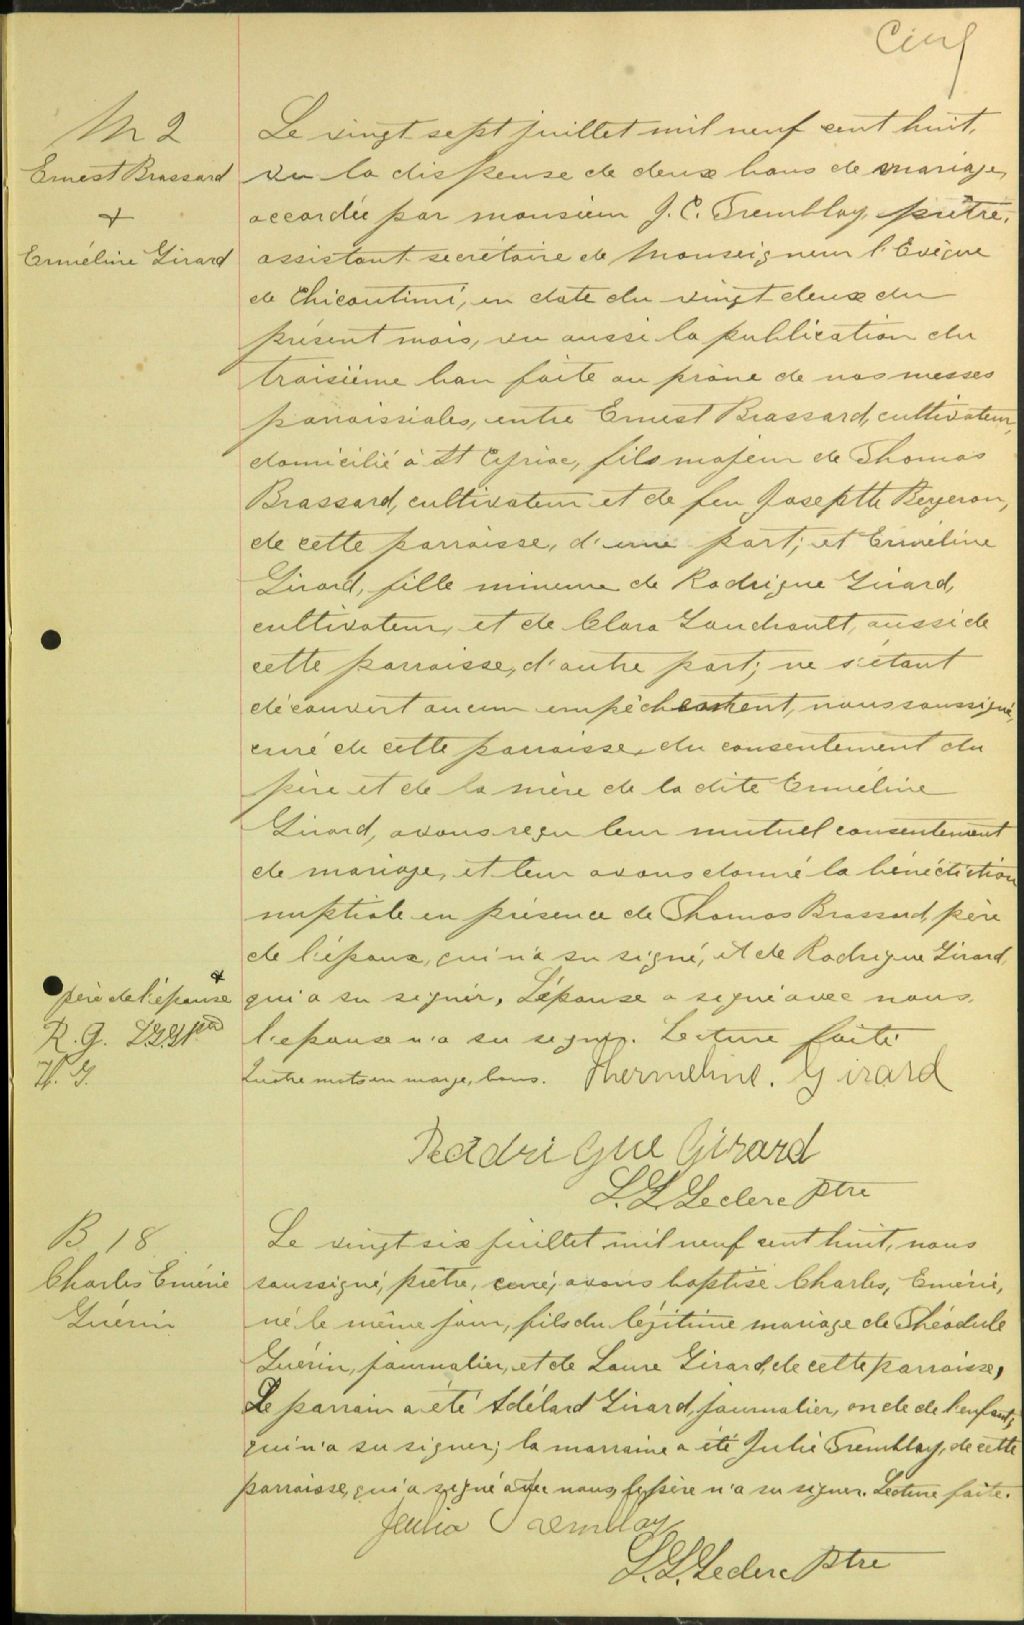 Cinq
M 2
Ernest Brassard
+
Erméline Girard
Le vingt sept juillet mil neuf cent huit,
vu la dispense de deux bans de mariage,
accordée par monsieur J. C. Tremblay, prêtre,
assistant secrétaire de Monseigneur l'Evêque
de Chicoutimi, en date du vingt deux du
présent mois, vu aussi la publication du
troisième ban faite au prône de nos messes
parroissiales, entre Ernest Brassard, cultivateur,
domicilié à St Cyriac, fils majeur de Thomas
Brassard, cultivateur et de feu Josepthe Bergeron,
de cette parroisse, d'une part; et Erméline
Girard, fille mineure de Rodrigue Girard,
cultivateur, et de Clara Gaudreault, aussi de
cette parroisse, d'autre part; ne s'étant
découvert aucun empêchement, nous soussigné,
curé de cette parroisse, du consentement du
père et de la mère de la dite Erméline
Girard, avons reçu leur mutuel consentement
de mariage, et leur avons donné la bénédiction
nuptiale en présence de Thomas Brassard, père
de l'époux, qui n'a su signé, et de Rodrigue Girard,
père de l'épouse +
qui a su signer. L'épouse a signé avec nous.
R. G.
l'epouse n'a su signer. Lecture faite.
H. G.
Quatre mots en marge, bons. Thermeline. Girard
Radrigue Girard
L. L. Leclerc ptre
B 18
Charles Emérie
Guérin
Le vingt six juillet mil neuf cent huit, nous
soussigné, prêtre, curé, avons baptisé Charles, Emérie,
né le même jour, fils du légitime mariage de Théodule
Guérin, journalier, et de Laure Girard, de cette parroisse,
Le parrain a été Adélard Girard, journalier, oncle de l'enfant,
qui n'a su signer; la marraine a été Julie Tremblay, de cette
parroisse, qui a signé avec nous, le père n'a su signer. Lecture faite.
Julia Tremblay
L. L. Leclerc ptre